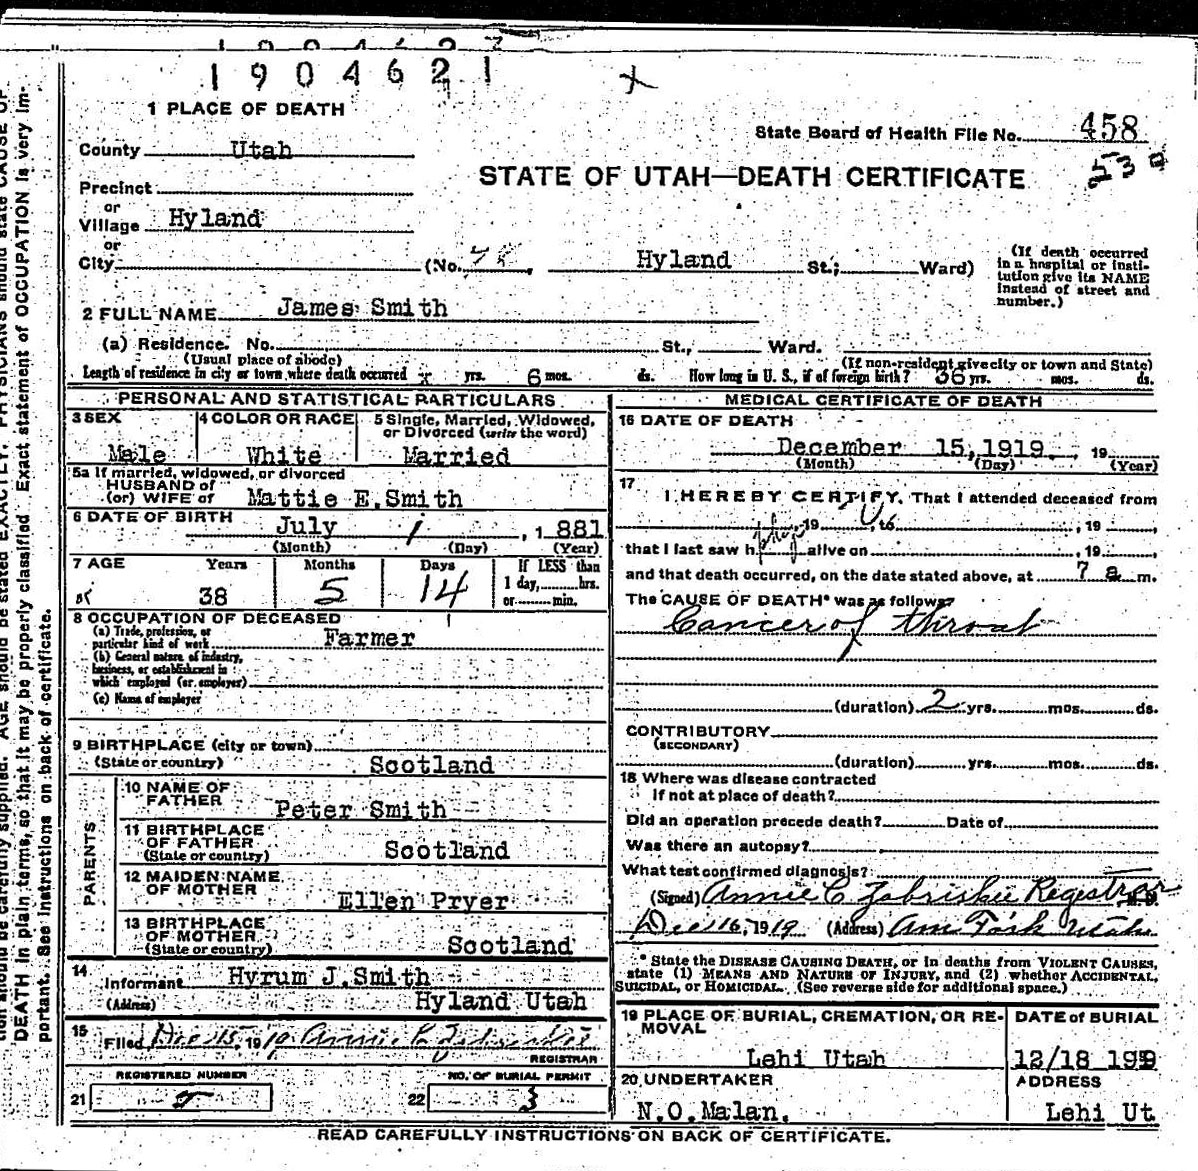 1904621
1 PLACE OF DEATH
State Board of Health File No. 458
County Utah
STATE OF UTAH—DEATH CERTIFICATE
Precinct
or
Village Hyland
or
City (No. Hyland St.; Ward)
(If death occurred
in a hospital or insti-
tution give its NAME
instead of street and
number.)
2 FULL NAME James Smith
(a) Residence. No. St., Ward.
(Usual place of abode) (If non-resident give city or town and State)
Length of residence in city or town where death occurred x yrs. 6 mos. ds. How long in U. S., if of foreign birth? 36 yrs. mos. ds.
PERSONAL AND STATISTICAL PARTICULARS
3 SEX 4 COLOR OR RACE 5 Single, Married, Widowed,
or Divorced (write the word)
Male White Married
5a If married, widowed, or divorced
HUSBAND of
(or) WIFE of Mattie E. Smith
6 DATE OF BIRTH July 1, 1881
(Month) (Day) (Year)
7 AGE Years Months Days If LESS than
1 day, hrs.
or min.
38 5 14
8 OCCUPATION OF DECEASED
(a) Trade, profession, or
particular kind of work Farmer
(b) General nature of industry,
business, or establishment in
which employed (or employer)
(c) Name of employer
9 BIRTHPLACE (city or town)
(State or country) Scotland
PARENTS
10 NAME OF
FATHER Peter Smith
11 BIRTHPLACE
OF FATHER
(State or country) Scotland
12 MAIDEN NAME
OF MOTHER Ellen Pryer
13 BIRTHPLACE
OF MOTHER
(State or country) Scotland
14 Informant Hyrum J. Smith
(Address) Hyland Utah
15 Filed Dec 15, 1919 Annie C Zabriskie
REGISTRAR
REGISTERED NUMBER NO. OF BURIAL PERMIT
21 5 22 3
MEDICAL CERTIFICATE OF DEATH
16 DATE OF DEATH
December 15, 1919. , 19
(Month) (Day) (Year)
17 I HEREBY CERTIFY, That I attended deceased from
, 19 , to , 19 ,
that I last saw h alive on , 19 ,
and that death occurred, on the date stated above, at 7 a m.
The CAUSE OF DEATH* was as follows:
Cancer of throat
(duration) 2 yrs. mos. ds.
CONTRIBUTORY
(SECONDARY)
(duration) yrs. mos. ds.
18 Where was disease contracted
If not at place of death?
Did an operation precede death? Date of
Was there an autopsy?
What test confirmed diagnosis?
(Signed) Annie C Zabriskie Registrar
Dec 16, 1919 (Address) Am Fork Utah
* State the DISEASE CAUSING DEATH, or in deaths from VIOLENT CAUSES,
state (1) MEANS AND NATURE OF INJURY, and (2) whether ACCIDENTAL,
SUICIDAL, or HOMICIDAL. (See reverse side for additional space.)
19 PLACE OF BURIAL, CREMATION, OR RE-
MOVAL
DATE of BURIAL
Lehi Utah 12/18 1919
20 UNDERTAKER ADDRESS
N.O. Malan. Lehi Ut
READ CAREFULLY INSTRUCTIONS ON BACK OF CERTIFICATE.
DEATH in plain terms, so that it may be properly classified. Exact statement of OCCUPATION is very im-
portant. See instructions on back of certificate.